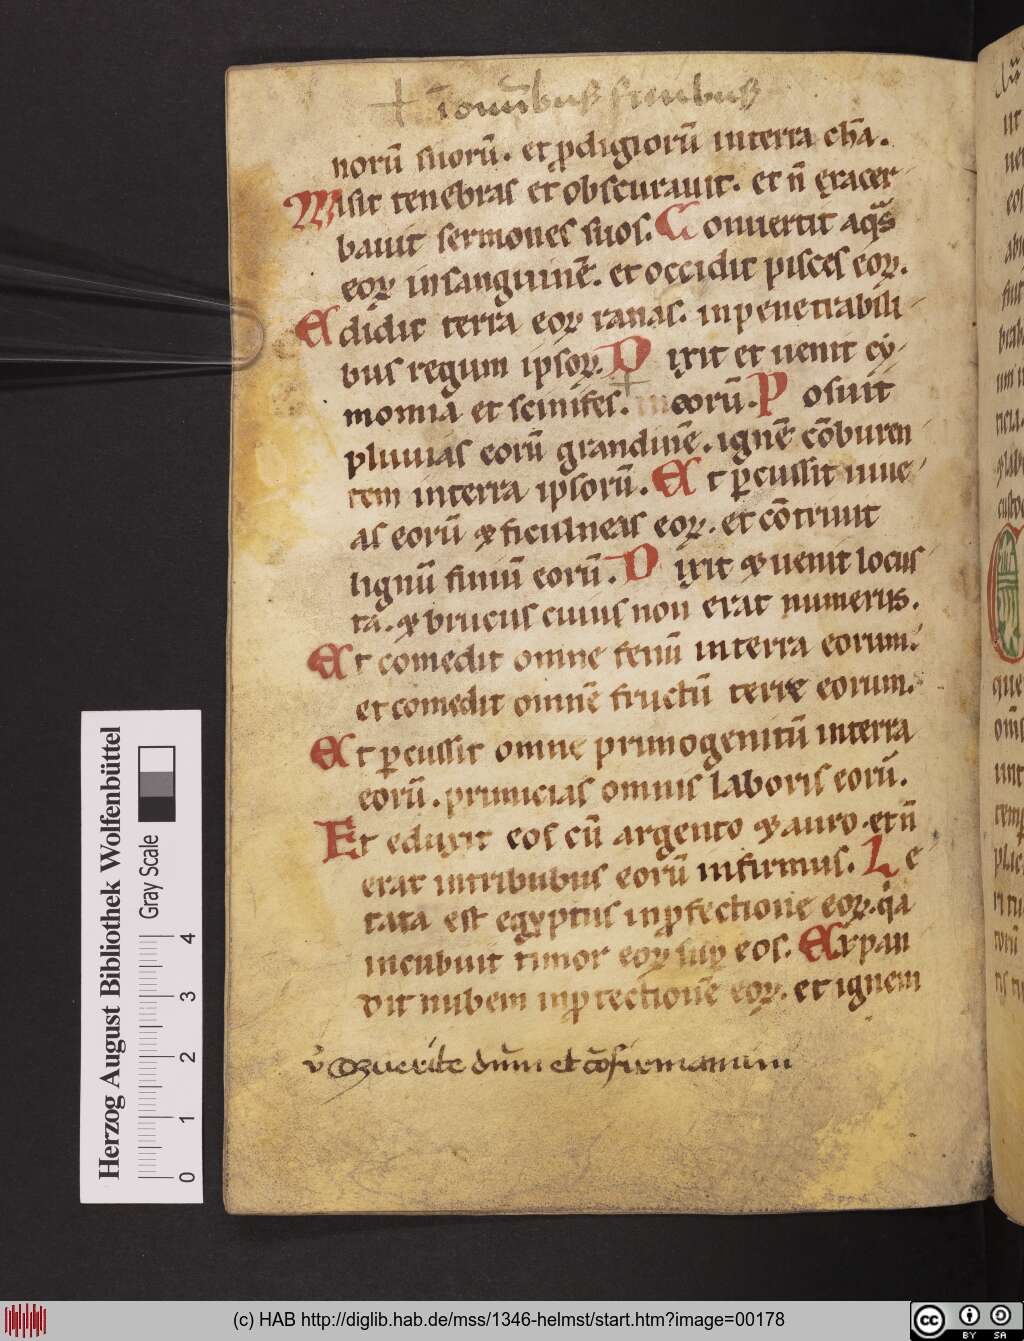 + ī om̄ibus finibus
norū suorū. et ꝓdigiorū in terra chā.
Misit tenebras et obscurauit. et n̄ exacer
bauit sermones suos. Conuertit aq̄s
eoꝝ in sanguinē. et occidit pisces eoꝝ.
Edidit terra eoꝝ ranas. in penetrabili
bus regum ipsoꝝ. Dixit et uenit cy
nomia et scinifes. in eorū. Posuit
pluuias eorū grandinē. ignē cōburen
tem in terra ipsorū. Et ꝑcussit uine
as eorū & ficulneas eoꝝ. et cōtriuit
lignū finiū eorū. Dixit & uenit locus
ta. & brucus cuius non erat numerus.
Et comedit omne fenū in terra eorum.
et comedit omnē fructū terre eorum.
Et ꝑcussit omne primogenitū in terra
eorū. primicias omnis laboris eorū.
Et eduxit eos cū argento & auro. et n̄
erat in tribubus eorū infirmus. Le
tata est egyptus in ꝓfectione eoꝝ. q̇a
incubuit timor eoꝝ suꝑ eos. Expan
dit nubem in ꝓtectionē eoꝝ. et ignem
v̊ Querite dn̄m et cōfirmamini
Herzog August Bibliothek Wolfenbüttel
Gray Scale
0 1 2 3 4
(c) HAB http://diglib.hab.de/mss/1346-helmst/start.htm?image=00178
cc BY SA